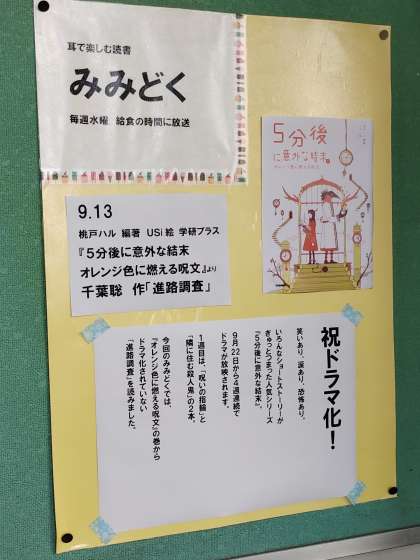 耳で楽しむ読書
みみどく
毎週水曜 給食の時間に放送
5分後
に意外な結末
9.13
桃戸ハル 編著 USi 絵 学研プラス
『5分後に意外な結末
オレンジ色に燃える呪文』より
千葉聡 作「進路調査」
祝ドラマ化！
笑いあり、涙あり、恐怖あり。
いろんなショートストーリーが
ぎゅっとつまった人気シリーズ
『5分後に意外な結末』。
9月22日から4週連続で
ドラマが放映されます。
1週目は、「呪いの指輪」と
「隣に住む殺人鬼」の2本。
今回のみみどくでは、
『オレンジ色に燃える呪文』の巻から
ドラマ化されていない
「進路調査」を読みました。